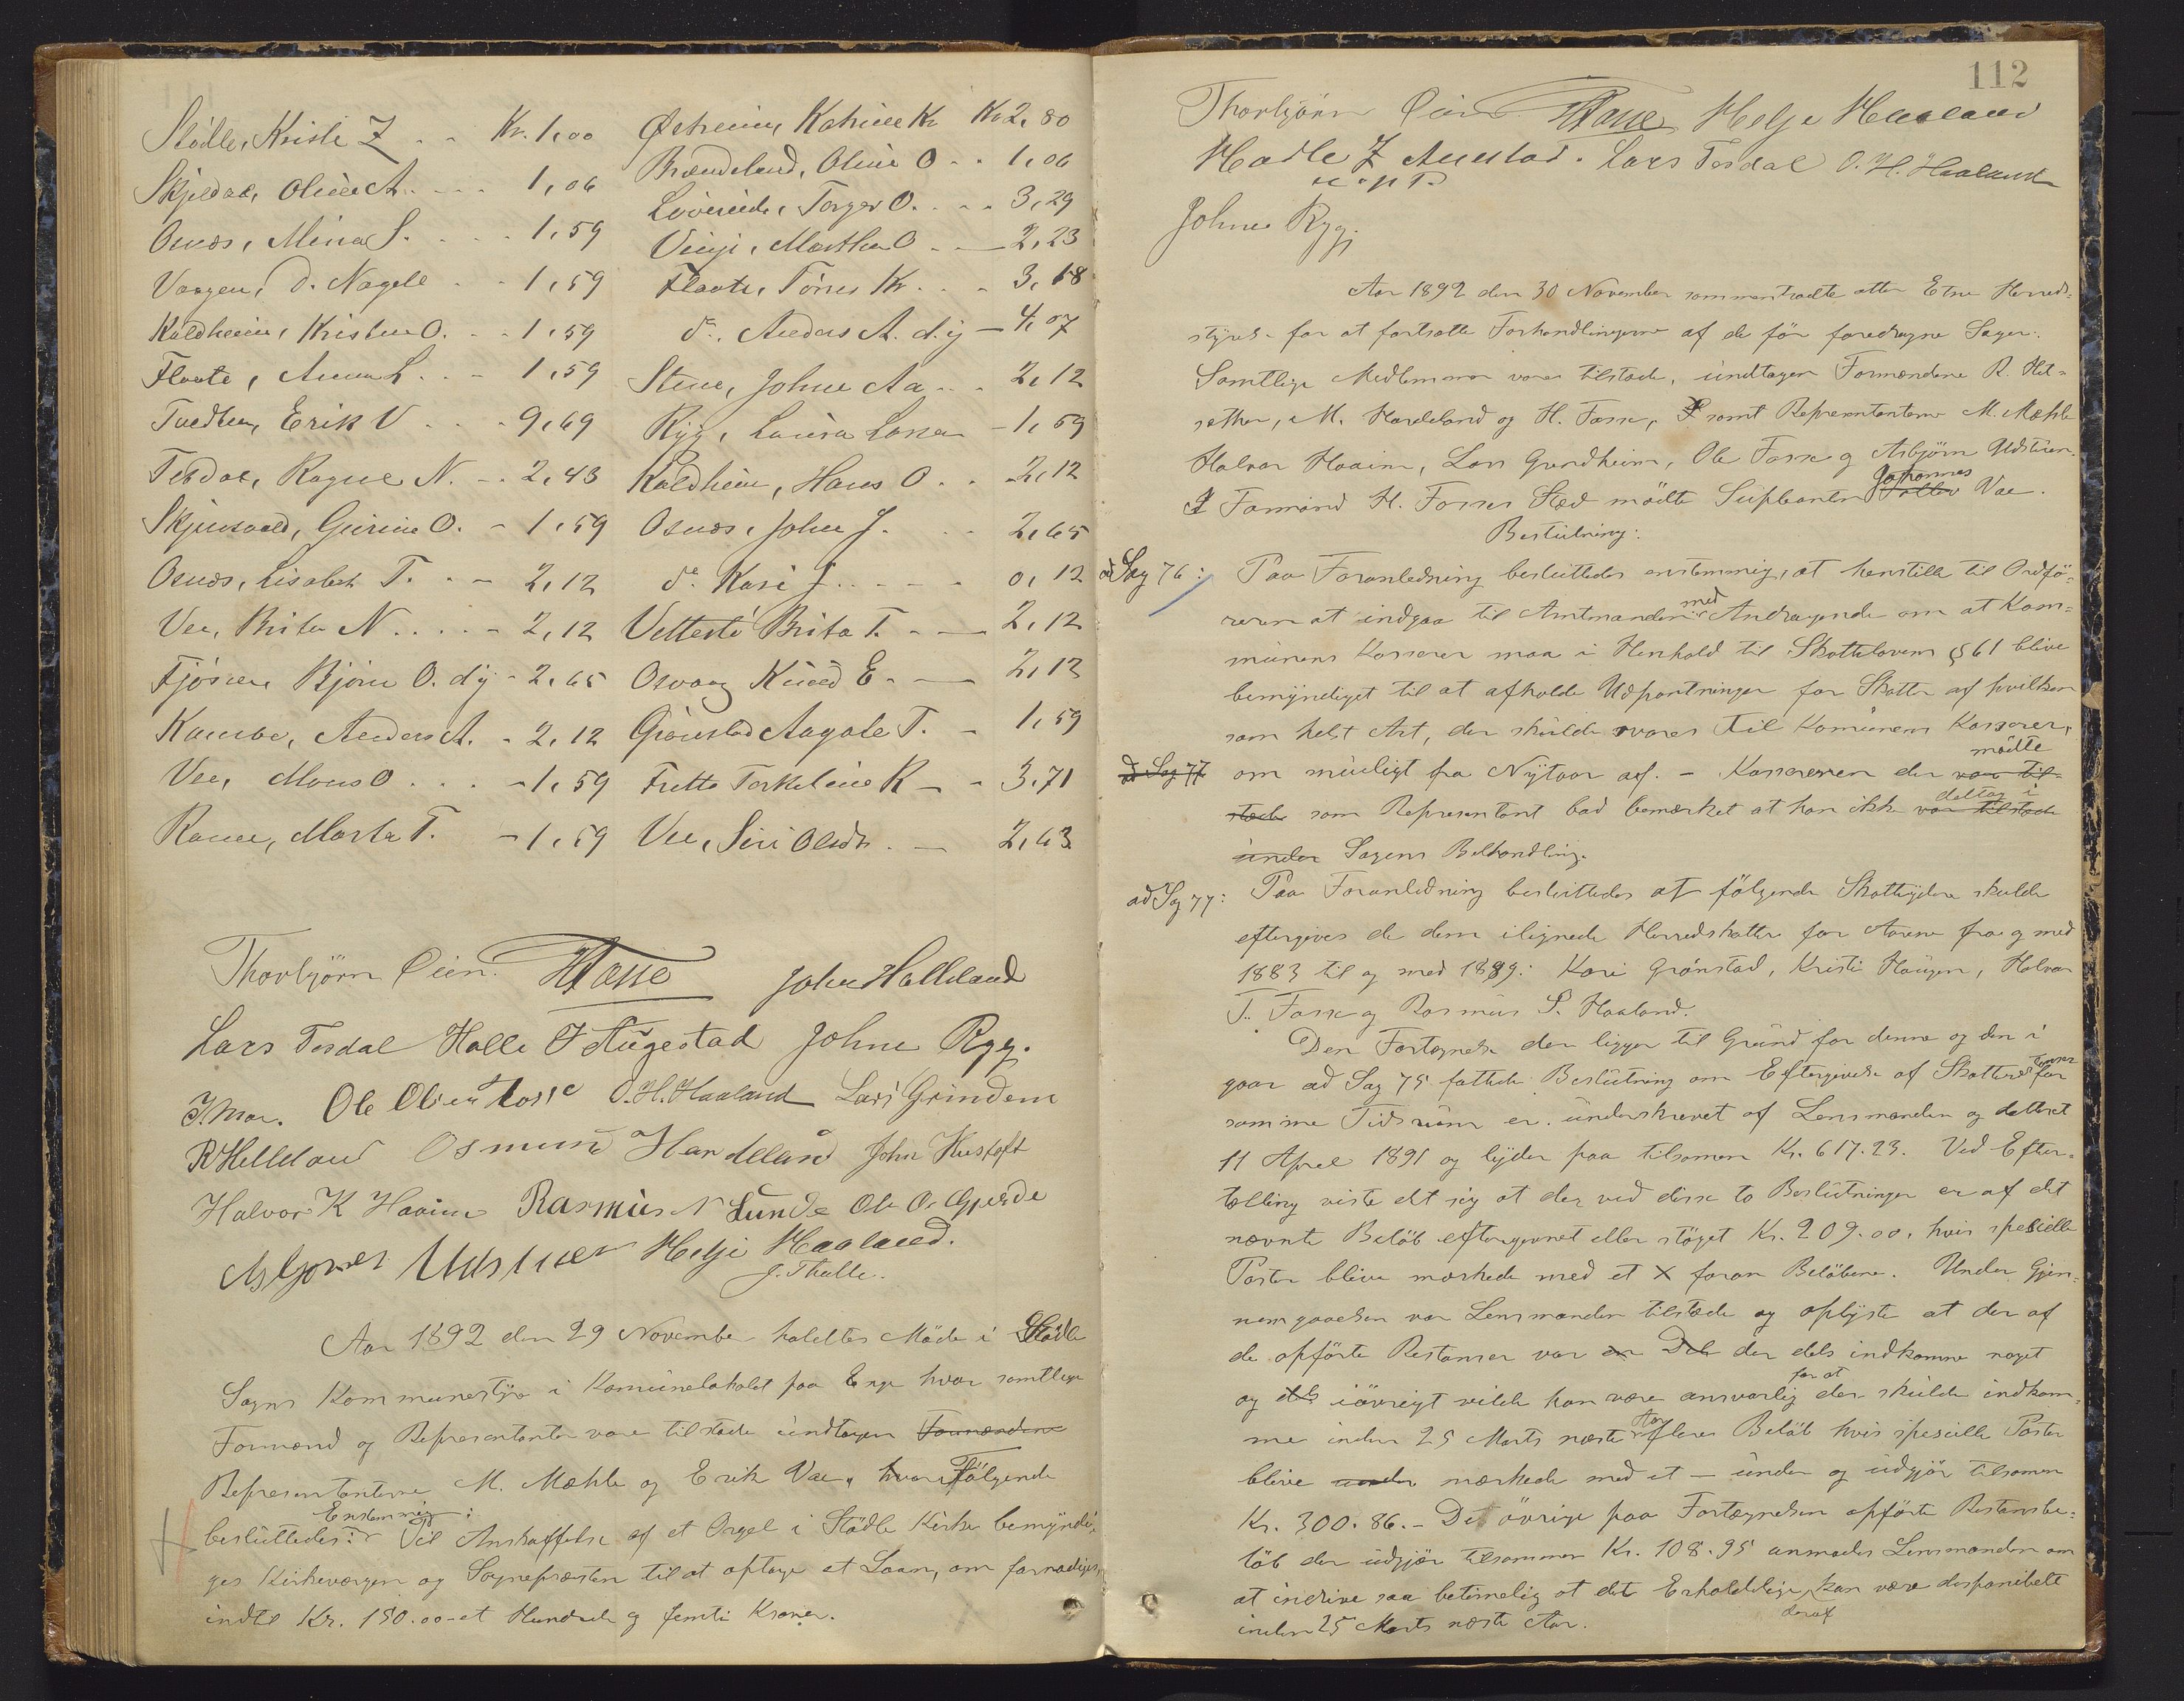 Stödle, Kristi Z . . Kr. 1,00
Skjeldal, Oline A. . . . 1,06
Osnæs, Mina S. . . . 1,59
Vaagen, d. Nagell . . 1,59
Kaldheim, Kristine O. . . 1,59
Flaate, Anna L. . . 1,59
Tvedten, Erik V . . . 9,69
Tesdal, Ragne N. . . 2,43
Skjensvold, Gurine O. - 1,59
Osnæs, Lisabet T. . - 2,12
Vee, Brita N . . . . - 2,12
Fjösne, Björn O. d.y - 2,65
Kambe, Anders A. - 2,12
Vee, Mons O . . . - 1,59
Ramee, Marta T. - 1,59
Østreim, Katrine Kr Kr 2,80
Brændeland, Oline O . . 1,06
Lövereide, Torger O. . . . 3,29
Vinje, Martha O . — 2,23
Flaate, Törres Kr. . . . 3,18
do. Anders A. d.y — 4,07
Stene, Johne Aa . . . 2,12
Ryg, Laura Larsen - 1,59
Kaldheim, Hans O . . 2,12
Osnæs, John J. . . . 2,65
do Kari J . . . . . 0,12
Vetteste Brita T. . — 2,12
Osvaag Knud E. . — 2,12
Grönstad Aagate T. . 1,59
Frette Torkeline K — . 3,71
Vee, Siri Olsdtr . — 2,63
Thorbjörn Øien. HFosse John Helleland
Lars Tesdal Halle J Augestad Johne Rygg.
Ole Olsen Fosse O. H. Haaland Lars Grindem
R Helleland Osmund Handeland John Hustoft
Halvor K Haaim Rasmus N Lunde Ole O. Gjerde
Asbjørn Udstuen Helje Haaland.
J. Thalle.
Aar 1892 den 29 November holdtes Möde i Stödle
Sogns Kommunestyre i Komünelokalet paa Enge hvor samtlige
Formænd og Representanter vare tilstede undtagen Formændene
Representanterne M. Mæhle og Erik Vae, hvor Fölgende
besluttedes: Enstemmig: Til Anskaffelse af et Orgel i Stödle Kirke bemyndi-
ges Kirkeværgen og Sognepræsten til at optage et Laan, om fornødiges,
indtil Kr. 150.00 - et Hundrede og femti Kroner.
112
Thorbjörn Øien HFosse Helje Haaland
Hadle J Auestad. Lars Tesdal O. H. Haaland
m. p. P.
Johne Rygg.
Aar 1892 den 30 November sammentraadte atter Etne Herreds-
styre for at fortsætte Forhandlingerne af de för foredragne Sager.
Samtlige Medlemmer vare tilstede, undtagen Formændene R. Hel-
sether, M. Handeland og H. Fosse, samt Representanterne M. Mæhle
Halvor Haaim, Lars Grindheim, Ole Fosse og Asbjörn Udstuen.
I Formand H. Fosses Sted mödte Supleanten Tollev Johannes Vae.
Beslutning:
ad Sag 76: Paa Foranledning besluttedes enstemmig, at henstille til Ordfö-
reren at indgaa til Amtmanden med Andragende om at Kom-
munens Kasserer maa i Henhold til Skattelovens § 61 blive
bemyndiget til at afholde Udpantninger for Skatter af hvilken
som helst Art, der skulde svares til Komunens Kasserer,
ad Sag 77 om muligt fra Nytaar af. - Kassereren der var til- mödte
stede som Representant bad bemærket at han ikke var tilstede deltog i
under Sagens Behandling.
ad Sag 77: Paa Foranledning besluttedes at fölgende Skatteydere skulde
eftergives de dem ilignede Herredskatter for Aarene fra og med
1883 til og med 1889: Kari Grönstad, Kristi Haugen, Halvor
T. Fosse og Rasmus S. Haaland.
Den Fortegnelse der ligger til Grund for denne og den i
gaar ad Sag 75 fattede Beslutning om Eftergivelse af Skatter for
samme Tidsrum er underskrevet af Lensmanden og datteret
11 April 1891 og lyder paa tilsammen Kr. 617.23. Ved Efter-
tælling viste det sig at der ved disse to Beslutninger er af det
nævnte Belöb eftergivet eller ströget Kr. 209.00, hvis spesielle
Poster blive mærkede med et X foran Belöbene. Under Gjen-
nemgaaelsen var Lensmanden tilstede og oplyste at der af
de opförte Restanser var en Del der dels indkomne noget
og dels iövrigt vilde han være ansvarlig for at der skulde indkom-
me inden 25 Marts næste Aar flere Belöb hvis spesielle Poster
blive under mærkede med et — under og udgjör tilsammen
Kr. 300.86. - De övrige paa Fortegnelsen opförte Restansebe-
löb der udgjör tilsammen Kr. 108.95 anmodes Lensmanden om
at indrive saa betimelig at det Erholdelige deraf kan være disponibelt
inden 25 Marts næste Aar.